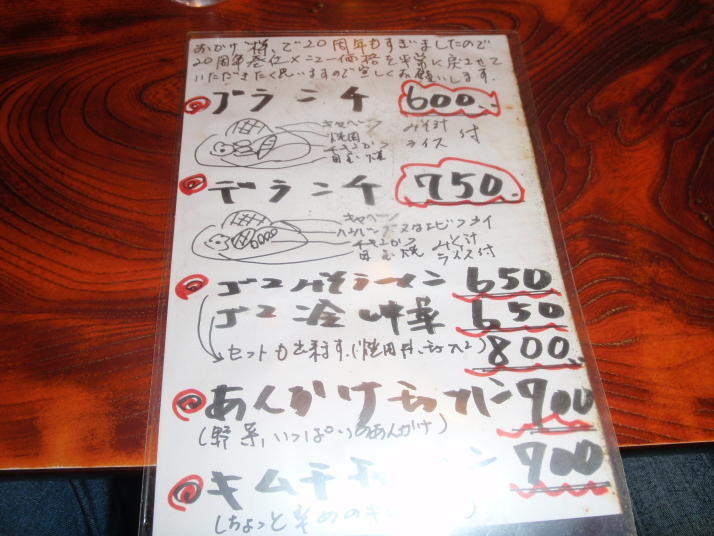 おかげ様で20周年もすぎましたので
20周年奉仕メニュー価格を平常に戻させて
いただきたく思いますので宜しくお願いします.
ブランチ 600
キャベーツ
焼肉
チキンカツ
目玉焼
みそ汁
ライス 付
デランチ 750
キャベーツ
ハンバーグ 又はエビフライ
チキンカツ
目玉焼
みそ汁
ライス付
ゴマ味ラーメン 650
ゴマ冷 650
セットも出来ます.(焼肉丼、チャハン) 800
あんかけチャーハン 900
(野菜いっぱいのあんかけ)
キムチチ ン 900
(ちょっと辛めのキ )